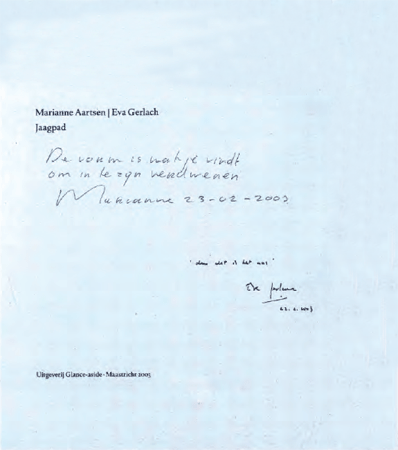 Marianne Aartsen | Eva Gerlach
Jaagpad
De vorm is wat je vindt
om in te zijn verdwenen
Marianne 23-02-2003
dat is het
Eva Gerlach
23.2.2003
Uitgeverij Glance-aside · Maastricht 2003